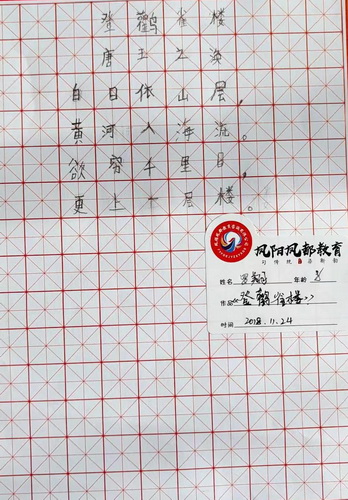 登鸛雀楼
唐王之涣
白日依山层，
黄河入海流。
欲穷千里目，
更上一层楼。
凤阳凤都教育
姓名 年龄 8
作品《登鹳雀楼》
时间 2018.11.24